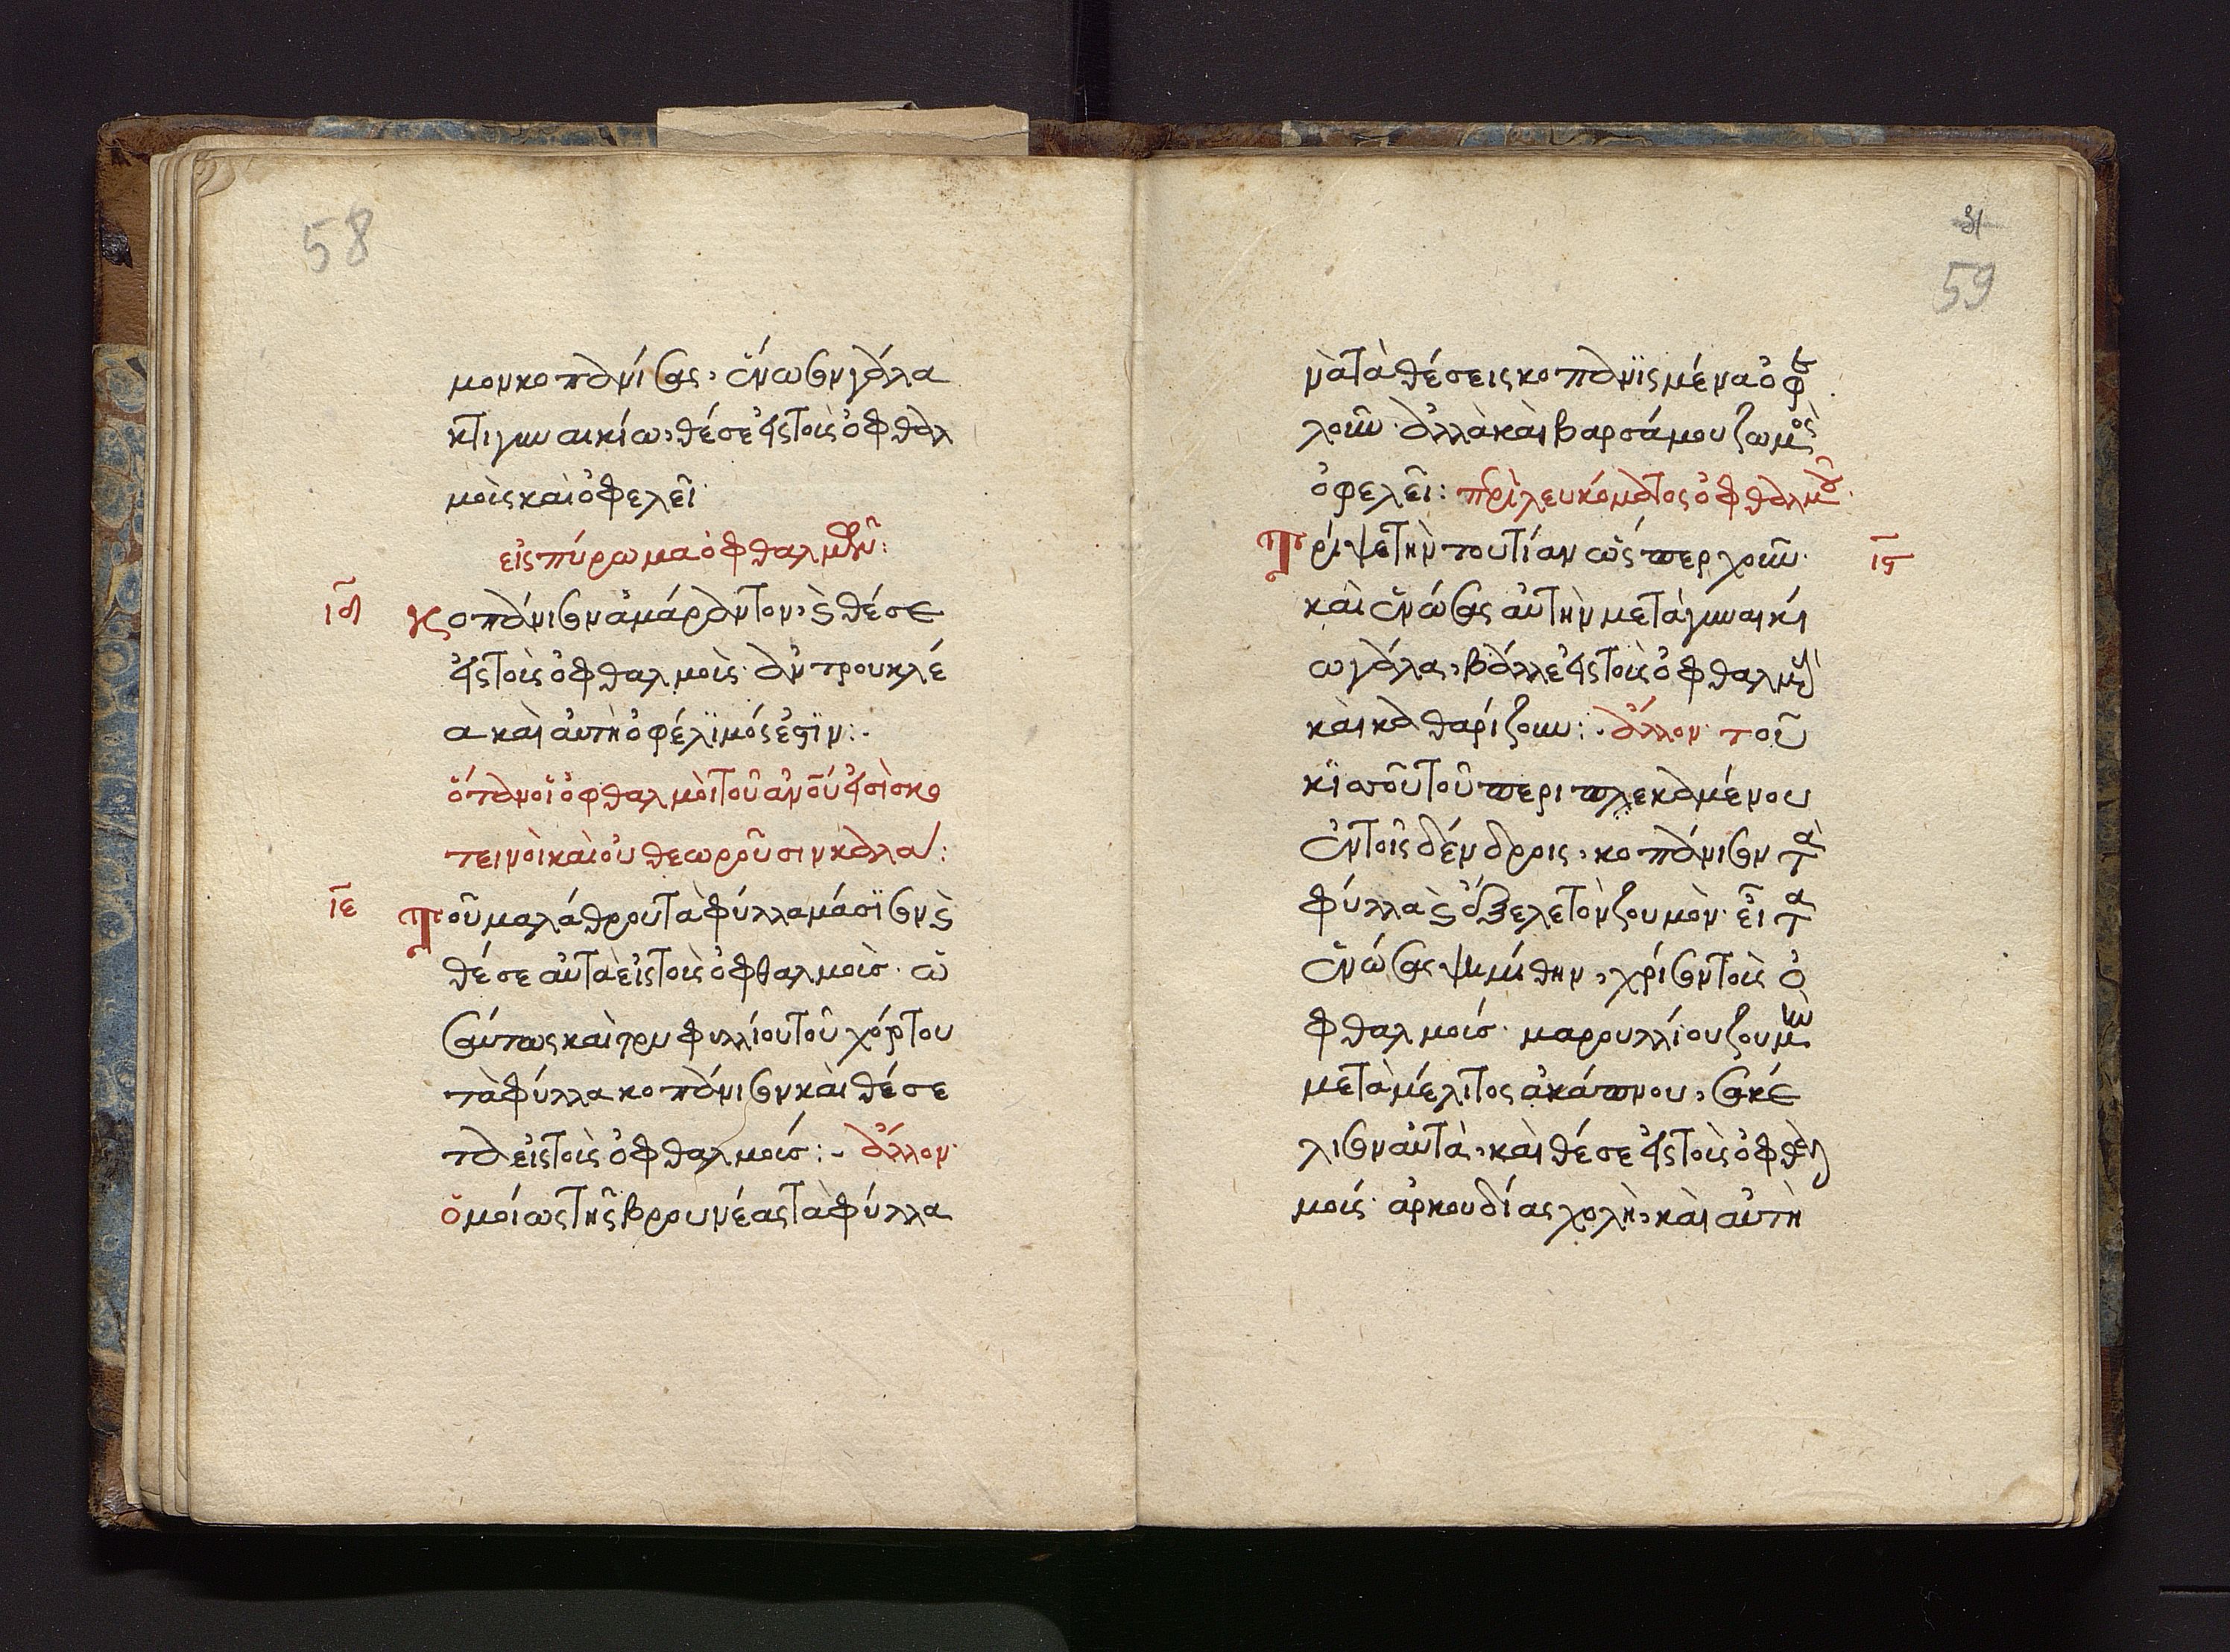 58
μον κοπανίσας, ἑνώσον γάλα
κτι γυναικίω, θέσε εἰς τοὶς ὀφθαλ
μοὶς καὶ ὀφελεῖ·
εἰς πύρωμα ὀφθαλμῶν:
ιδ Κοπάνισον ἀμάραντον, καὶ θέσε
εἰς τοὶς ὀφθαλμοὶς· ἀντρουκλέ
α καὶ αὐτὴ ὀφέλϊμός ἐστϊν:.
ὅταν οἱ ὀφθαλμοὶ τοῦ ἀνοῦ εἰσὶ σκο
τεινοὶ καὶ οὐ θεωροῦσιν καλα:
ιε Τοῦ μαλάθρου τὰ φύλλα μάσϊσον καὶ
θέσε αὐτὰ εἰς τοὶς ὀφθαλμοὶσ· ὡ
σαύτως καὶ τρυφυλλίου τοῦ χόρτου
τὰ φύλλα κοπάνισον καὶ θέσε
τα εἰς τοὶς ὀφθαλμοίσ:- ἄλλον·
ὁμοίως τῆς βρουνέας τὰ φύλλα
31
59
νὰ τὰ θέσεις κοπανϊσμένα ὀφ
λοιν· ἀλλὰ καὶ βαρσάμου ζωμὸς
ὀφελεῖ: περὶ λευκόματος ὀφθαλμοῦ·
Τρίψε τὴν τουτίαν ὥσπερ χοῦν· ις
καὶ ἑνώσας αὐτὴν μετὰ γυναικί
ω γάλα, βάλλε εἰς τοὶς ὀφθαλμοὺς
καὶ καθαρίζουν:. ἄλλον· τοῦ
κϊσσοῦ τοῦ περιπλεκαμένου
ἐν τοῖς δένδροις, κοπάνισον τὰ
φύλλα καὶ ὄβγελε τὸν ζουμὸν· εἶτα
ἑνώσας ψιμίθην, χρίσον τοὶς ὀ
φθαλμοίσ· μαρουλλίου ζουμὶν
μετὰ μέλιτος ἀκάπνου, σακέ
λισον αὐτὰ, καὶ θέσε εἰς τοὶς ὀφθαλ
μοίς· ἀρκουδίας χολὴ, καὶ αὐτὴ